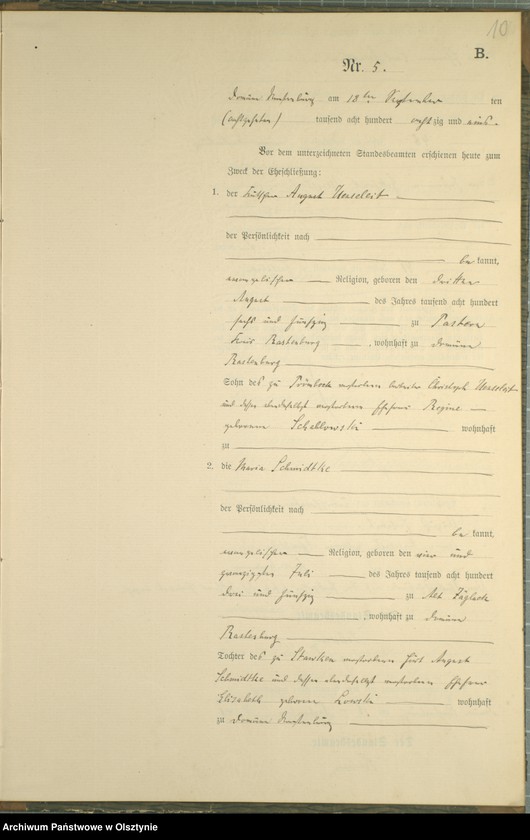 10
B.
Nr. 5.
Domäne Rastenburg am 18ten September ten
(achtzehnten) tausend acht hundert achtzig und eins.
Vor dem unterzeichneten Standesbeamten erschienen heute zum
Zweck der Eheschließung:
1. der Kutscher August
der Persönlichkeit nach
be kannt,
evangelischer Religion, geboren den dritten
August des Jahres tausend acht hundert
sechs und fünfzig zu Pastern
Kreis Rastenburg, wohnhaft zu Domäne
Rastenburg
Sohn des zu verstorbenen Christoph
und dessen daselbst verstorbenen Ehefrau Regine
geborenen wohnhaft
zu
2. die Maria Schmidtke
der Persönlichkeit nach
be kannt,
evangelischer Religion, geboren den vier und
zwanzigsten Juli des Jahres tausend acht hundert
drei und fünfzig zu Alt
, wohnhaft zu Domäne
Rastenburg
Tochter des zu verstorbenen August
Schmidtke und dessen verstorbenen Ehefrau
Elisabeth geborenen wohnhaft
zu Domäne Rastenburg
Archiwum Państwowe w Olsztynie